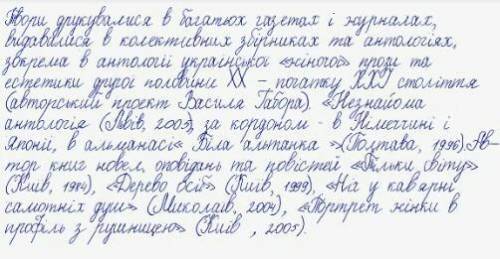 Твори друкувалися в багатьох газетах і журналах,
видавалися в колективних збірниках та антологіях,
зокрема в антології української «жіночої» прози та
естетики другої половини XX – початку XXI століття
(авторський проект Василя Габора). «Незнайома
антологія (Львів, 2005), за кордоном - в Німеччині і
Японії, в альманасі «Біла альтанка »(Полтава, 1996).Ав-
тор книг новел, оповідань та повістей «Тільки світу»
(Київ, 1984), «Дерево осіб» (Київ, 1999), «На у кав'ярні
самотніх душ» (Миколаїв, 2004), «Портрет жінки в
профіль з рушницею» (Київ , 2005).